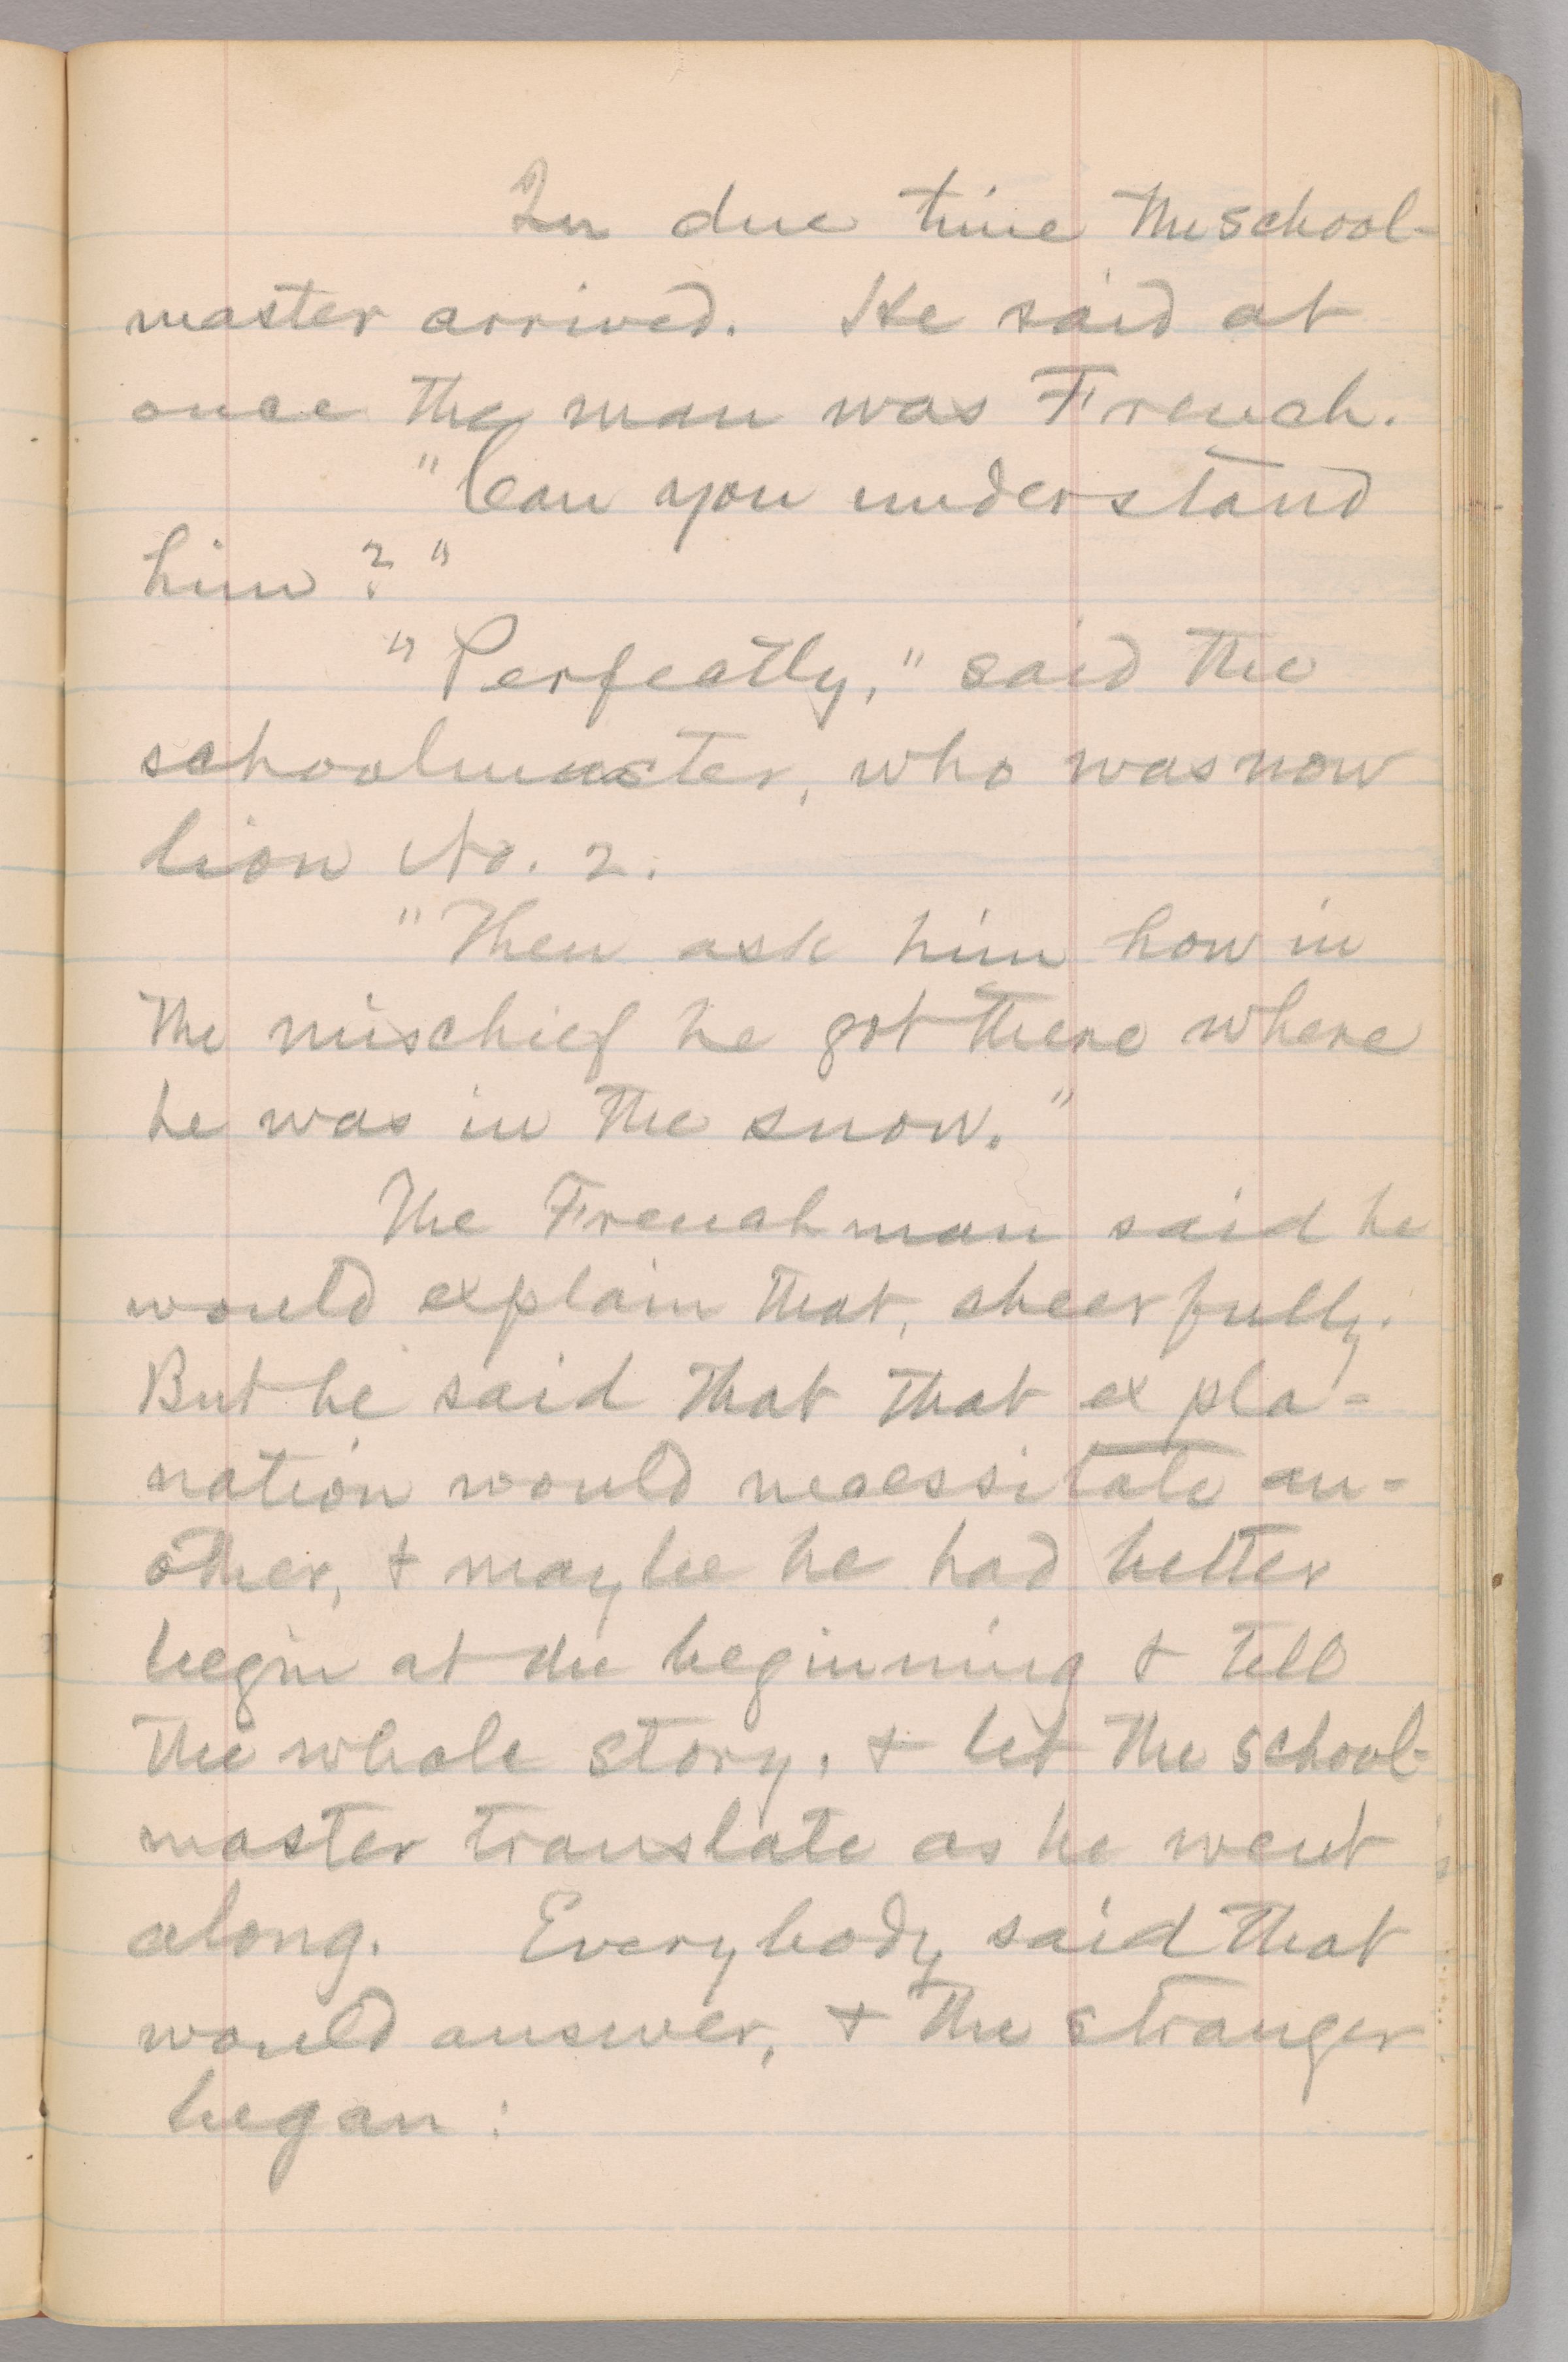 In due time the school-
master arrived. He said at
once the man was French.
"Can you understand
him?"
"Perfectly," said the
schoolmaster, who was now
lion No. 2.
"Then ask him how in
the mischief he got there where
he was in the snow."
The Frenchman said he
would explain that, cheerfully.
But he said that that expla-
nation would necessitate an-
other, & maybe he had better
begin at the beginning & tell
the whole story, & let the school-
master translate as he went
along. Everybody said that
would answer, & the stranger
began: